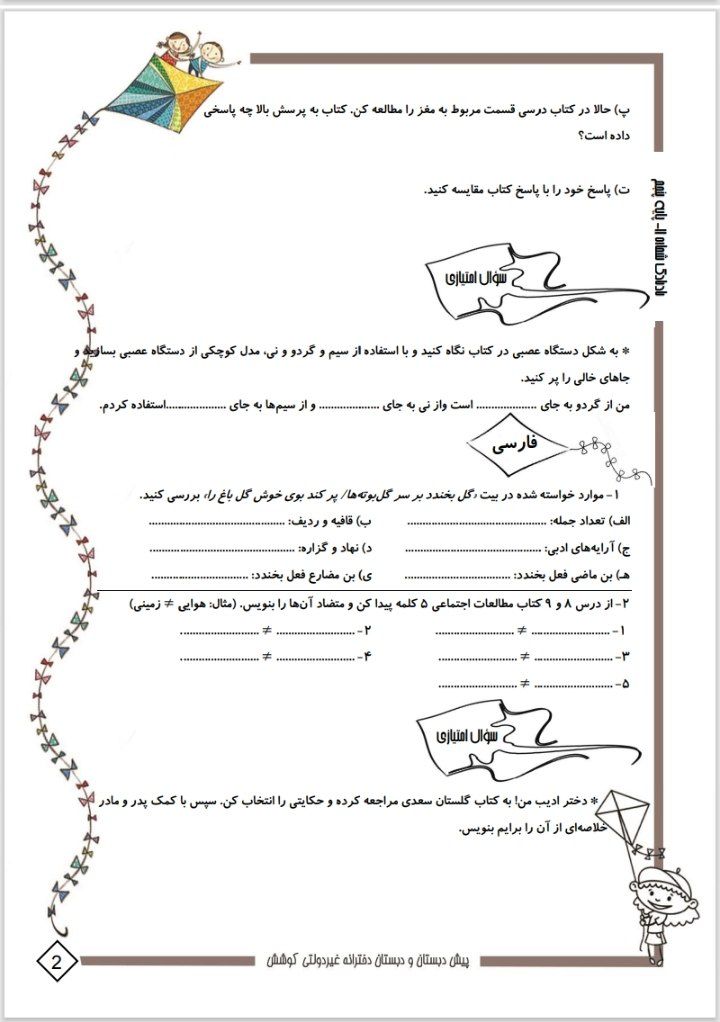 پ) حالا در کتاب درسی قسمت مربوط به مغز را مطالعه کن. کتاب به پرسش بالا چه پاسخی
داده است؟
ت) پاسخ خود را با پاسخ کتاب مقایسه کنید.
سؤال امتیازی
* به شکل دستگاه عصبی در کتاب نگاه کنید و با استفاده از سیم و گردو و نی، مدل کوچکی از دستگاه عصبی بسازید و
جاهای خالی را پر کنید.
من از گردو به جای .................... است واز نی به جای .................... و از سیم‌ها به جای ....................استفاده کردم.
فارسی
۱- موارد خواسته شده در بیت «گل بخندد بر سر گل‌بوته‌ها/ پر کند بوی خوش گل باغ را» بررسی کنید.
الف) تعداد جمله: ............................................. ب) قافیه و ردیف: .............................................
ج) آرایه‌های ادبی: ............................................. د) نهاد و گزاره: .............................................
هـ) بن ماضی فعل بخندد: ................................... ی) بن مضارع فعل بخندد: ................................
۲- از درس ۸ و ۹ کتاب مطالعات اجتماعی ۵ کلمه پیدا کن و متضاد آن‌ها را بنویس. (مثال: هوایی ≠ زمینی)
۱- .......................... ≠ .......................... ۲- .......................... ≠ ..........................
۳- .......................... ≠ .......................... ۴- .......................... ≠ ..........................
۵- .......................... ≠ ..........................
سؤال امتیازی
* دختر ادیب من! به کتاب گلستان سعدی مراجعه کرده و حکایتی را انتخاب کن. سپس با کمک پدر و مادر
خلاصه‌ای از آن را برایم بنویس.
پیش دبستان و دبستان دخترانه غیردولتی کوشش
2